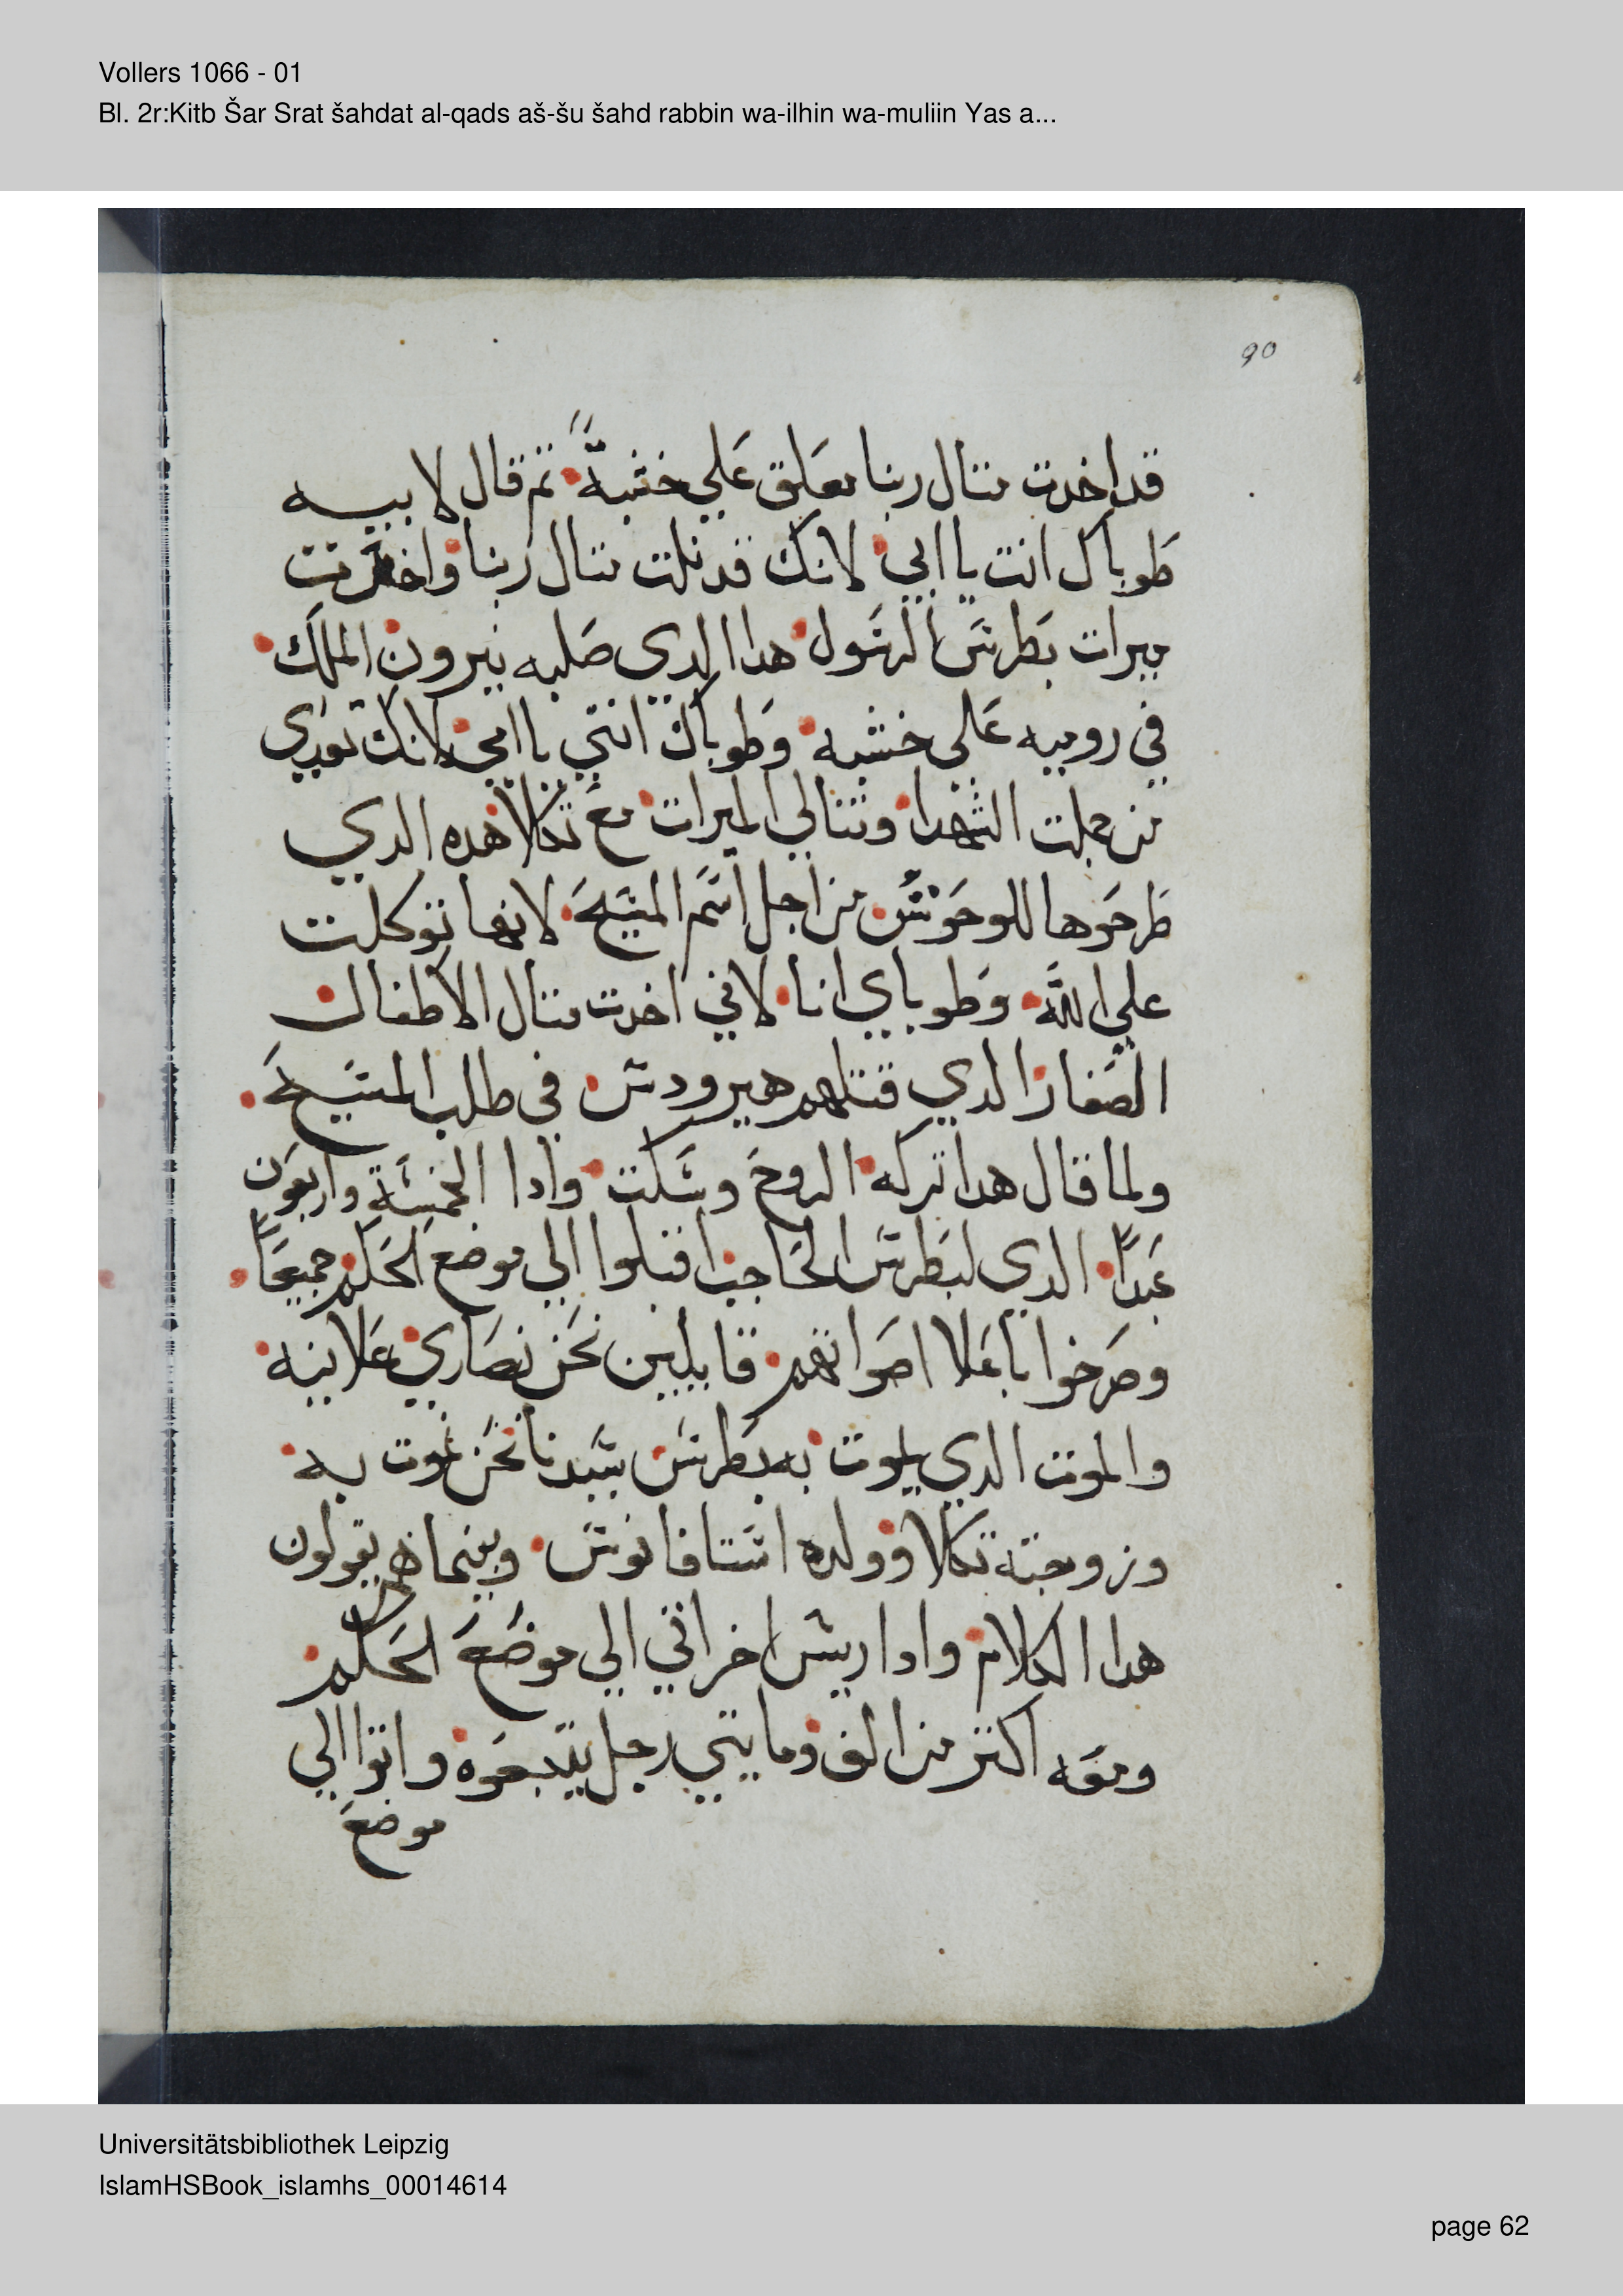 Vollers 1066 - 01
Bl. 2r:Kitb Šar Srat šahdat al-qads aš-šu šahd rabbin wa-ilhin wa-muliin Yas a...
90
قد اخدت متال ربنا معلق علي خشبةً تم قال لابيه
طوباك انت يا ابي لانك قد نلت متال ربنا واخدت
ميرات بطرس الرسول هدا الدى صلبه نيرون الملك
في روميه علي خشبه وطوباك انتي يا امي لانك تعدي
من جملت الشهدا وتنالي الميرات مع تكلا هده الدي
طرحوها للوحوش من اجل اسم المسيح لانها توكلت
علي الله وطوباي انا لاني اخدت متال الاطفال
الصغار الدي قتلهم هيرودس في طلب المسيح
ولما قال هدا تركه الروح وسكت وادا الخمسة واربعون
عبداً الدى لبطرس الحاجب اقبلوا الي موضع الحكم جميعاً
وصرخوا باعلا اصواتهم قايلين نحن نصاري علانيه
والموت الدي يموت به بطرس سيدنا نحن نموت به
وزوجته تكلا وولده استافانوس وبينما هم يقولون
هدا الكلام وادا ريس اخر اتي الي موضع الحكم
ومعه اكتر من الف ومايتي رجل يتبعوه واتوا الي
موضع
Universitätsbibliothek Leipzig
IslamHSBook_islamhs_00014614
page 62